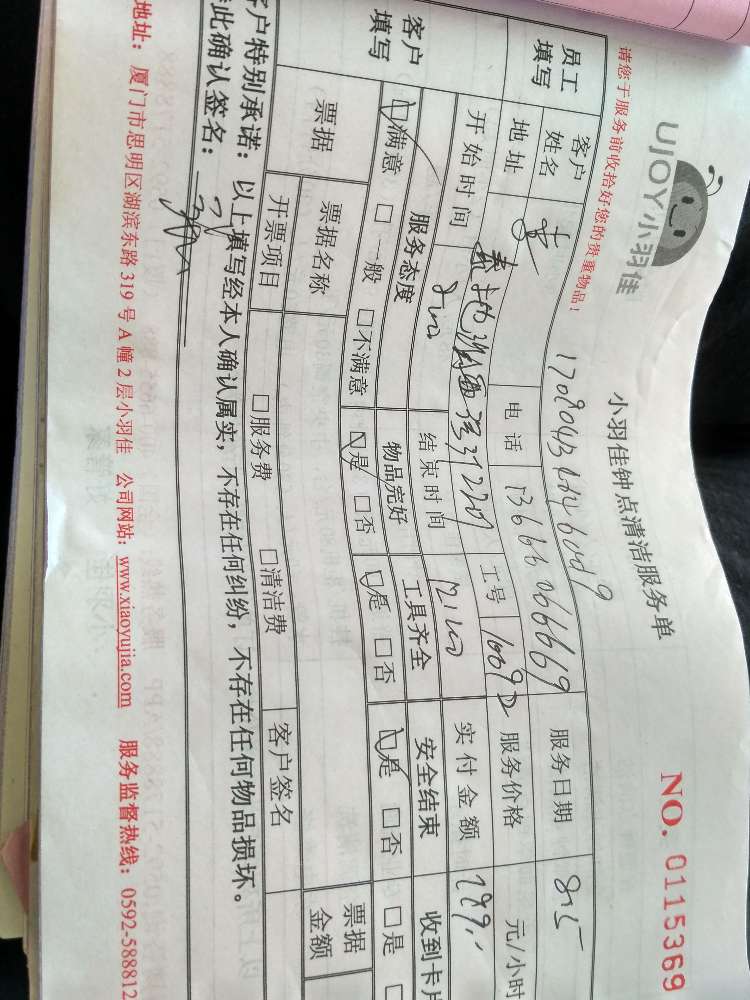 UJOY小羽佳
小羽佳钟点清洁服务单
NO. 0115369
请您于服务前收拾好您的贵重物品！
员工填写 客户姓名 李 电话 13666066669 服务日期 8.15
地址 工号 10092 服务价格 元/小时
开始时间 结束时间 实付金额 199.
客户填写 服务态度 物品完好 工具齐全 安全结束 收到卡片
满意 □一般 □不满意 是 □否 是 □否 是 □否 □是
票据 票据名称 □服务费 □清洁费 客户签名 票据金额
开票项目
客户特别承诺：以上填写经本人确认属实，不存在任何纠纷，不存在任何物品损坏。
此确认签名：
地址：厦门市思明区湖滨东路 319 号 A 幢 2 层小羽佳 公司网站：www.xiaoyujia.com 服务监督热线：0592-588812